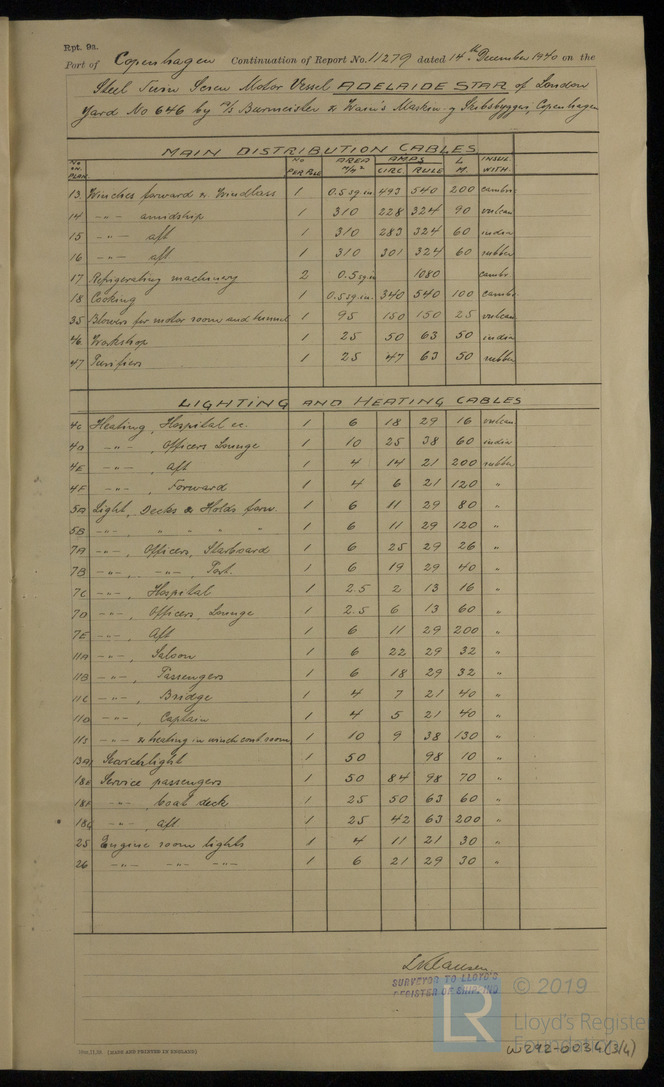 Rpt. 9a.
Port of Copenhagen Continuation of Report No. 11279 dated 14th December 1940 on the
Steel Twin Screw Motor Vessel ADELAIDE STAR of London
Yard No 646 by M/S Burmeister & Wain's Maskin- og Skibsbyggeri, Copenhagen
MAIN DISTRIBUTION CABLES
No ON PLAN No PER POLE AREA M/M² AMPS CIRC. RULE L M. INSUL WITH.
13 Winches forward & Windlass 1 0.5 sq.in. 493 540 200 cambr
14 -"- amidship 1 310 228 324 90 vulcan
15 -"- aft 1 310 283 324 60 india
16 -"- aft 1 310 301 324 60 rubber
17 Refrigerating machinery 2 0.5 sq.in 1080 cambr
18 Cooking 1 0.5 sq.in. 340 540 100 cambr
35 Blowers for motor room and tunnel 1 95 150 150 25 vulcan
46 Workshop 1 25 50 63 50 india
47 Purifiers 1 25 47 63 50 rubber
LIGHTING AND HEATING CABLES
4C Heating, Hospital ec. 1 6 18 29 16 vulcan
4D -"-, Officers Lounge 1 10 25 38 60 india
4E -"-, Aft 1 4 14 21 200 rubber
4F -"-, Forward 1 4 6 21 120 "
5A Light, Decks & Holds forw. 1 6 11 29 80 "
5B -"-, " " " " 1 6 11 29 120 "
7A -"-, Officers, Starboard 1 6 25 29 26 "
7B -"-, -"-, Port. 1 6 19 29 40 "
7C -"-, Hospital 1 2.5 2 13 16 "
7D -"-, Officers, Lounge 1 2.5 6 13 60 "
7E -"-, Aft 1 6 11 29 200 "
11A -"-, Saloon 1 6 22 29 32 "
11B -"-, Passengers 1 6 18 29 32 "
11C -"-, Bridge 1 4 7 21 40 "
11D -"-, Captain 1 4 5 21 40 "
11S -"- & heating in winch cont room 1 10 9 38 130 "
13A Searchlight 1 50 98 10 "
18E Service passengers 1 50 84 98 70 "
18F -"- boat deck 1 25 50 63 60 "
18G -"-, aft 1 25 42 63 200 "
25 Engine room lights 1 4 11 21 30 "
26 -"- -"- -"- 1 6 21 29 30 "
SURVEYOR TO LLOYD'S
REGISTER OF SHIPPING
(MADE AND PRINTED IN ENGLAND)
LR
© 2019
Lloyd's Register
Foundation
W292-0034 (3/4)